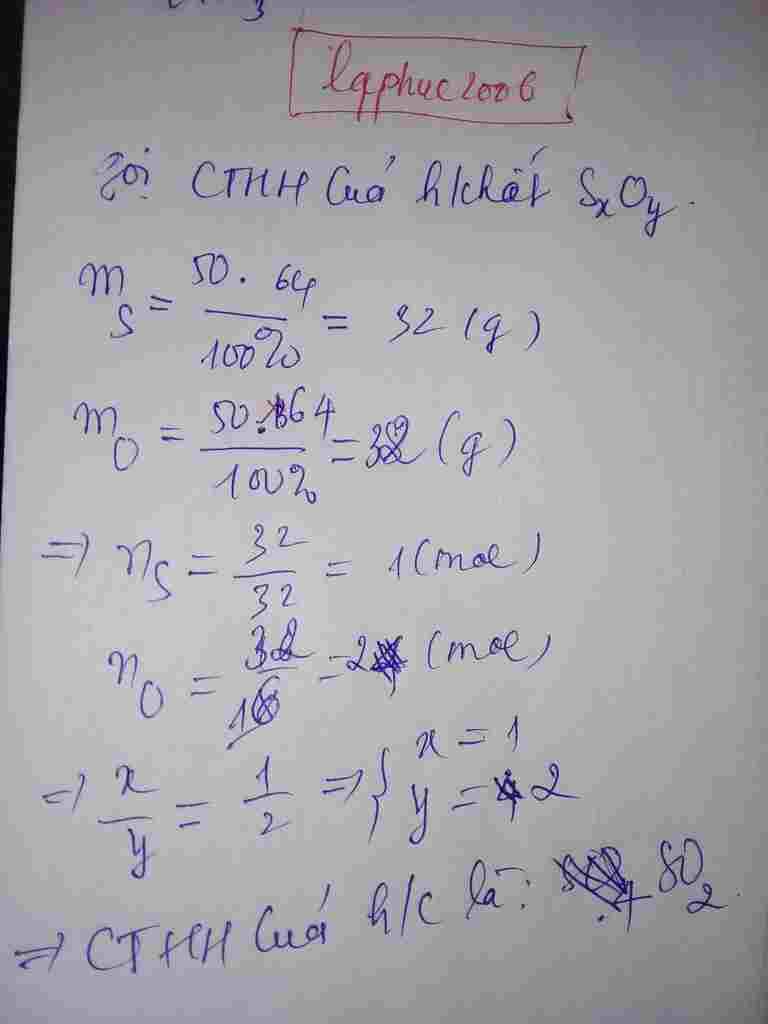 lqphuc2006
Gọi CTHH của h/chất SxOy.
mS = 50. 64 / 100% = 32 (g)
mO = 50.64 / 100% = 32 (g)
=> nS = 32 / 32 = 1 (mol)
nO = 32 / 16 = 2 (mol)
=> x / y = 1 / 2 => { x = 1
y = 2
=> CTHH của h/c là: SO2.